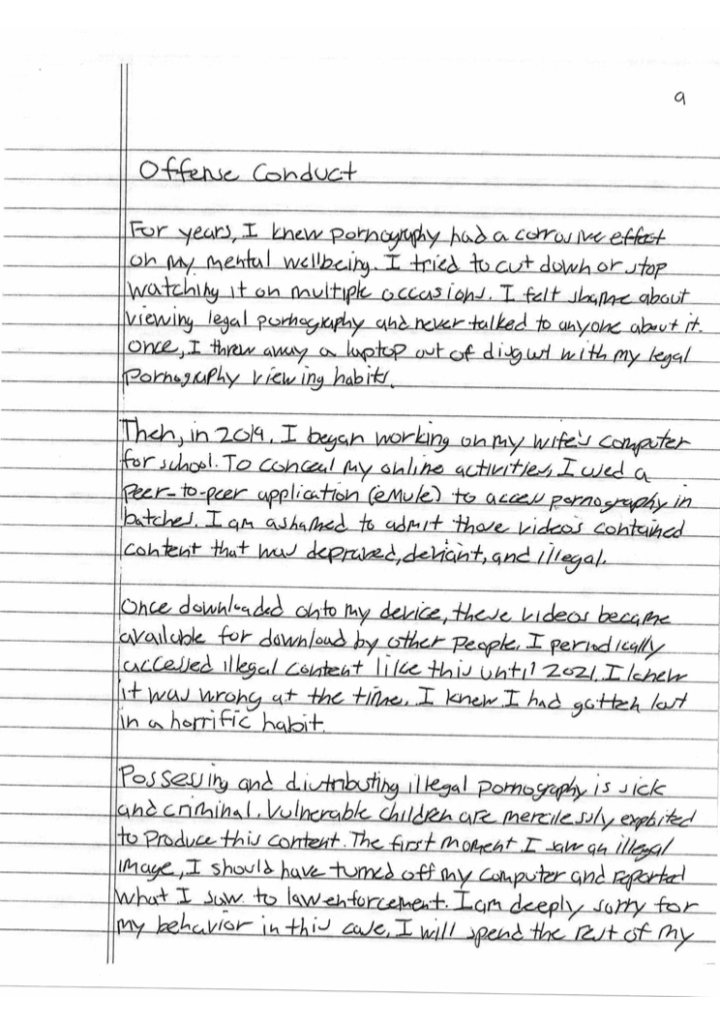 9
Offense Conduct
For years, I knew pornography had a corrosive effect
on my mental wellbeing. I tried to cut down or stop
watching it on multiple occasions. I felt shame about
viewing legal pornography and never talked to anyone about it.
Once, I threw away a laptop out of disgust with my legal
pornography viewing habits.
Then, in 2019, I began working on my wife's computer
for school. To conceal my online activities, I used a
peer-to-peer application (eMule) to access pornography in
batches. I am ashamed to admit those videos contained
content that was depraved, deviant, and illegal.
Once downloaded onto my device, these videos became
available for download by other people. I periodically
accessed illegal content like this until 2021. I knew
it was wrong at the time. I knew I had gotten lost
in a horrific habit.
Possessing and distributing illegal pornography is sick
and criminal. Vulnerable children are mercilessly exploited
to produce this content. The first moment I saw an illegal
image, I should have turned off my computer and reported
what I saw to law enforcement. I am deeply sorry for
my behavior in this case. I will spend the rest of my